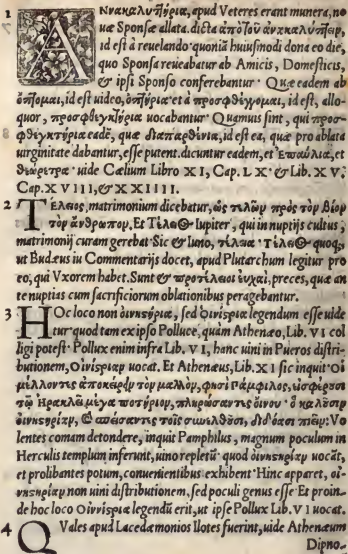 1 ΑΝνακαλυπτήρια, apud Veteres erant munera, no
uæ Sponsæ allata. dicta ἀπὸ τοῦ ἀνακαλυπτεῖν,
id est à reuelando· quoniā huiusmodi dona eo die,
quo Sponsa reueabatur ab Amicis, Domesticis,
& ipsi Sponso conferebantur· Quæ eadem ab
ὀπτομαι, id est uideo, ὀπτήρια· et à προσφθέγγομαι, id est, allo-
quor, προσφθεγκτήρια uocabantur· Quamuis sint, qui προσ-
φθεγκτήρια eadē, quæ διαπαρθένια, id est ea, quæ pro ablata
uirginitate dabantur, esse putent. dicuntur eadem, et Ἐπαύλια, et
θεώρετρα· uide Cælium Libro XI, Cap. LX· & Lib. XV,
Cap. XVIII, & XXIIII.
2 ΤΕλεος, matrimonium dicebatur, ὡς τελῶν πρὸς τὸν βίον
τὸν ἄνθρωπον. Et Τέλειος Iupiter, qui in nuptijs cultus,
matrimonij curam gerebat· Sic & Iuno, τέλεια· Τέλειος quoq;
ut Budæus in Commentarijs docet, apud Plutarchum legitur pro
eo, qui Vxorem habet. Sunt & προτέλειοι εὐχαι, preces, quæ an
te nuptias cum sacrificiorum oblationibus peragebantur.
3 HOc loco non οἰνιστηρία, sed Οἰνιστρία legendum esse uide
tur· quod tam ex ipso Polluce, quàm Athenæo, Lib. VI col
ligi potest· Pollux enim infra Lib. VI, hanc uini in Pueros distri-
butionem, Οἰνιστρίαν uocat. Et Athenæus, Lib. XI sic inquit· Οἱ
μέλλοντες ἀποκείρειν τὸν μαλλὸν, φησὶ Πάμφιλος, εἰσφέρουσι
τῷ Ἡρακλεῖ μέγα ποτήριον, πληρώσαντες οἴνου· ὃ καλοῦσιν
οἰνιστηρίαν, & σπείσαντες τοῖς συνελθοῦσι, διδόασι πιεῖν· Vo
lentes comam detondere, inquit Pamphilus, magnum poculum in
Herculis templum inferunt, uino repletū· quod οἰνιστηρίαν uocāt,
et prolibantes potum, conuenientibus exhibent· Hinc apparet, οἰ-
νιστηρίαν non uini distributionem, sed poculi genus esse· Et proin-
de hoc loco Οἰνιστρία legendū erit, ut ipse Pollux Lib. VI uocat.
4 QVales apud Lacedæmonios Ilotes fuerint, uide Athenæum
Dipno-